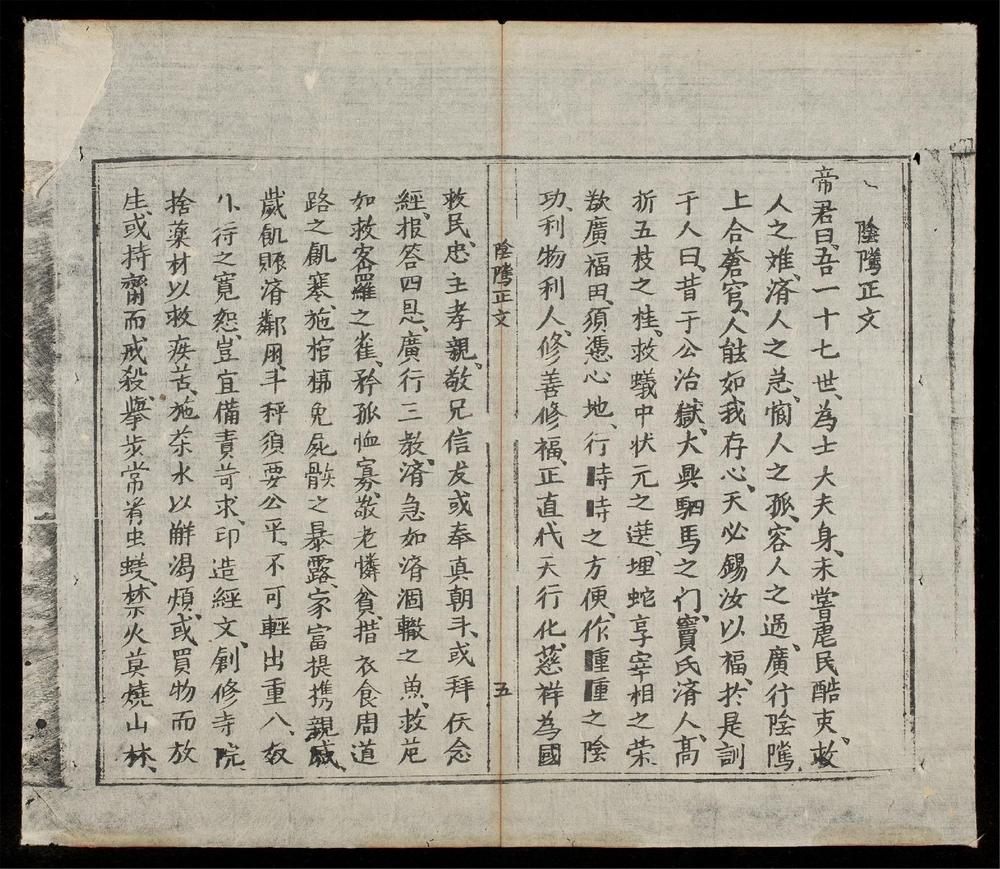 陰隲正文
帝君曰、吾一十七世、為士大夫身、未嘗虐民酷吏、救
人之难、濟人之急、憫人之孤、容人之過、廣行陰隲、
上合蒼穹、人能如我存心、天必錫汝以福、於是訓
于人曰、昔于公治獄、大興駟馬之门、竇氏濟人、高
折五枝之桂、救蟻中状元之選、埋蛇享宰相之荣、
欲廣福田、須憑心地、行時時之方便、作種種之陰
功、利物利人、修善修福、正直代天行化、慈祥為國
陰隲正文 五
救民、忠主孝親、敬兄信友、或奉真朝斗、或拜仸念
經、报答四恩、廣行三教、濟急如濟涸轍之魚、救危
如救密羅之雀、矜孤恤寡、敬老憐貧、措衣食周道
路之飢寒、施棺槨免屍骸之暴露、家富提携親戚、
歲飢賑濟鄰朋、斗秤須要公平、不可輕出重入、奴
仆待之寬恕、豈宜備責苛求、印造經文、創修寺院、
捨藥材以救疾苦、施茶水以觧渴煩、或買物而放
生、或持齋而戒殺、舉步常看虫蟻、禁火莫燒山林、